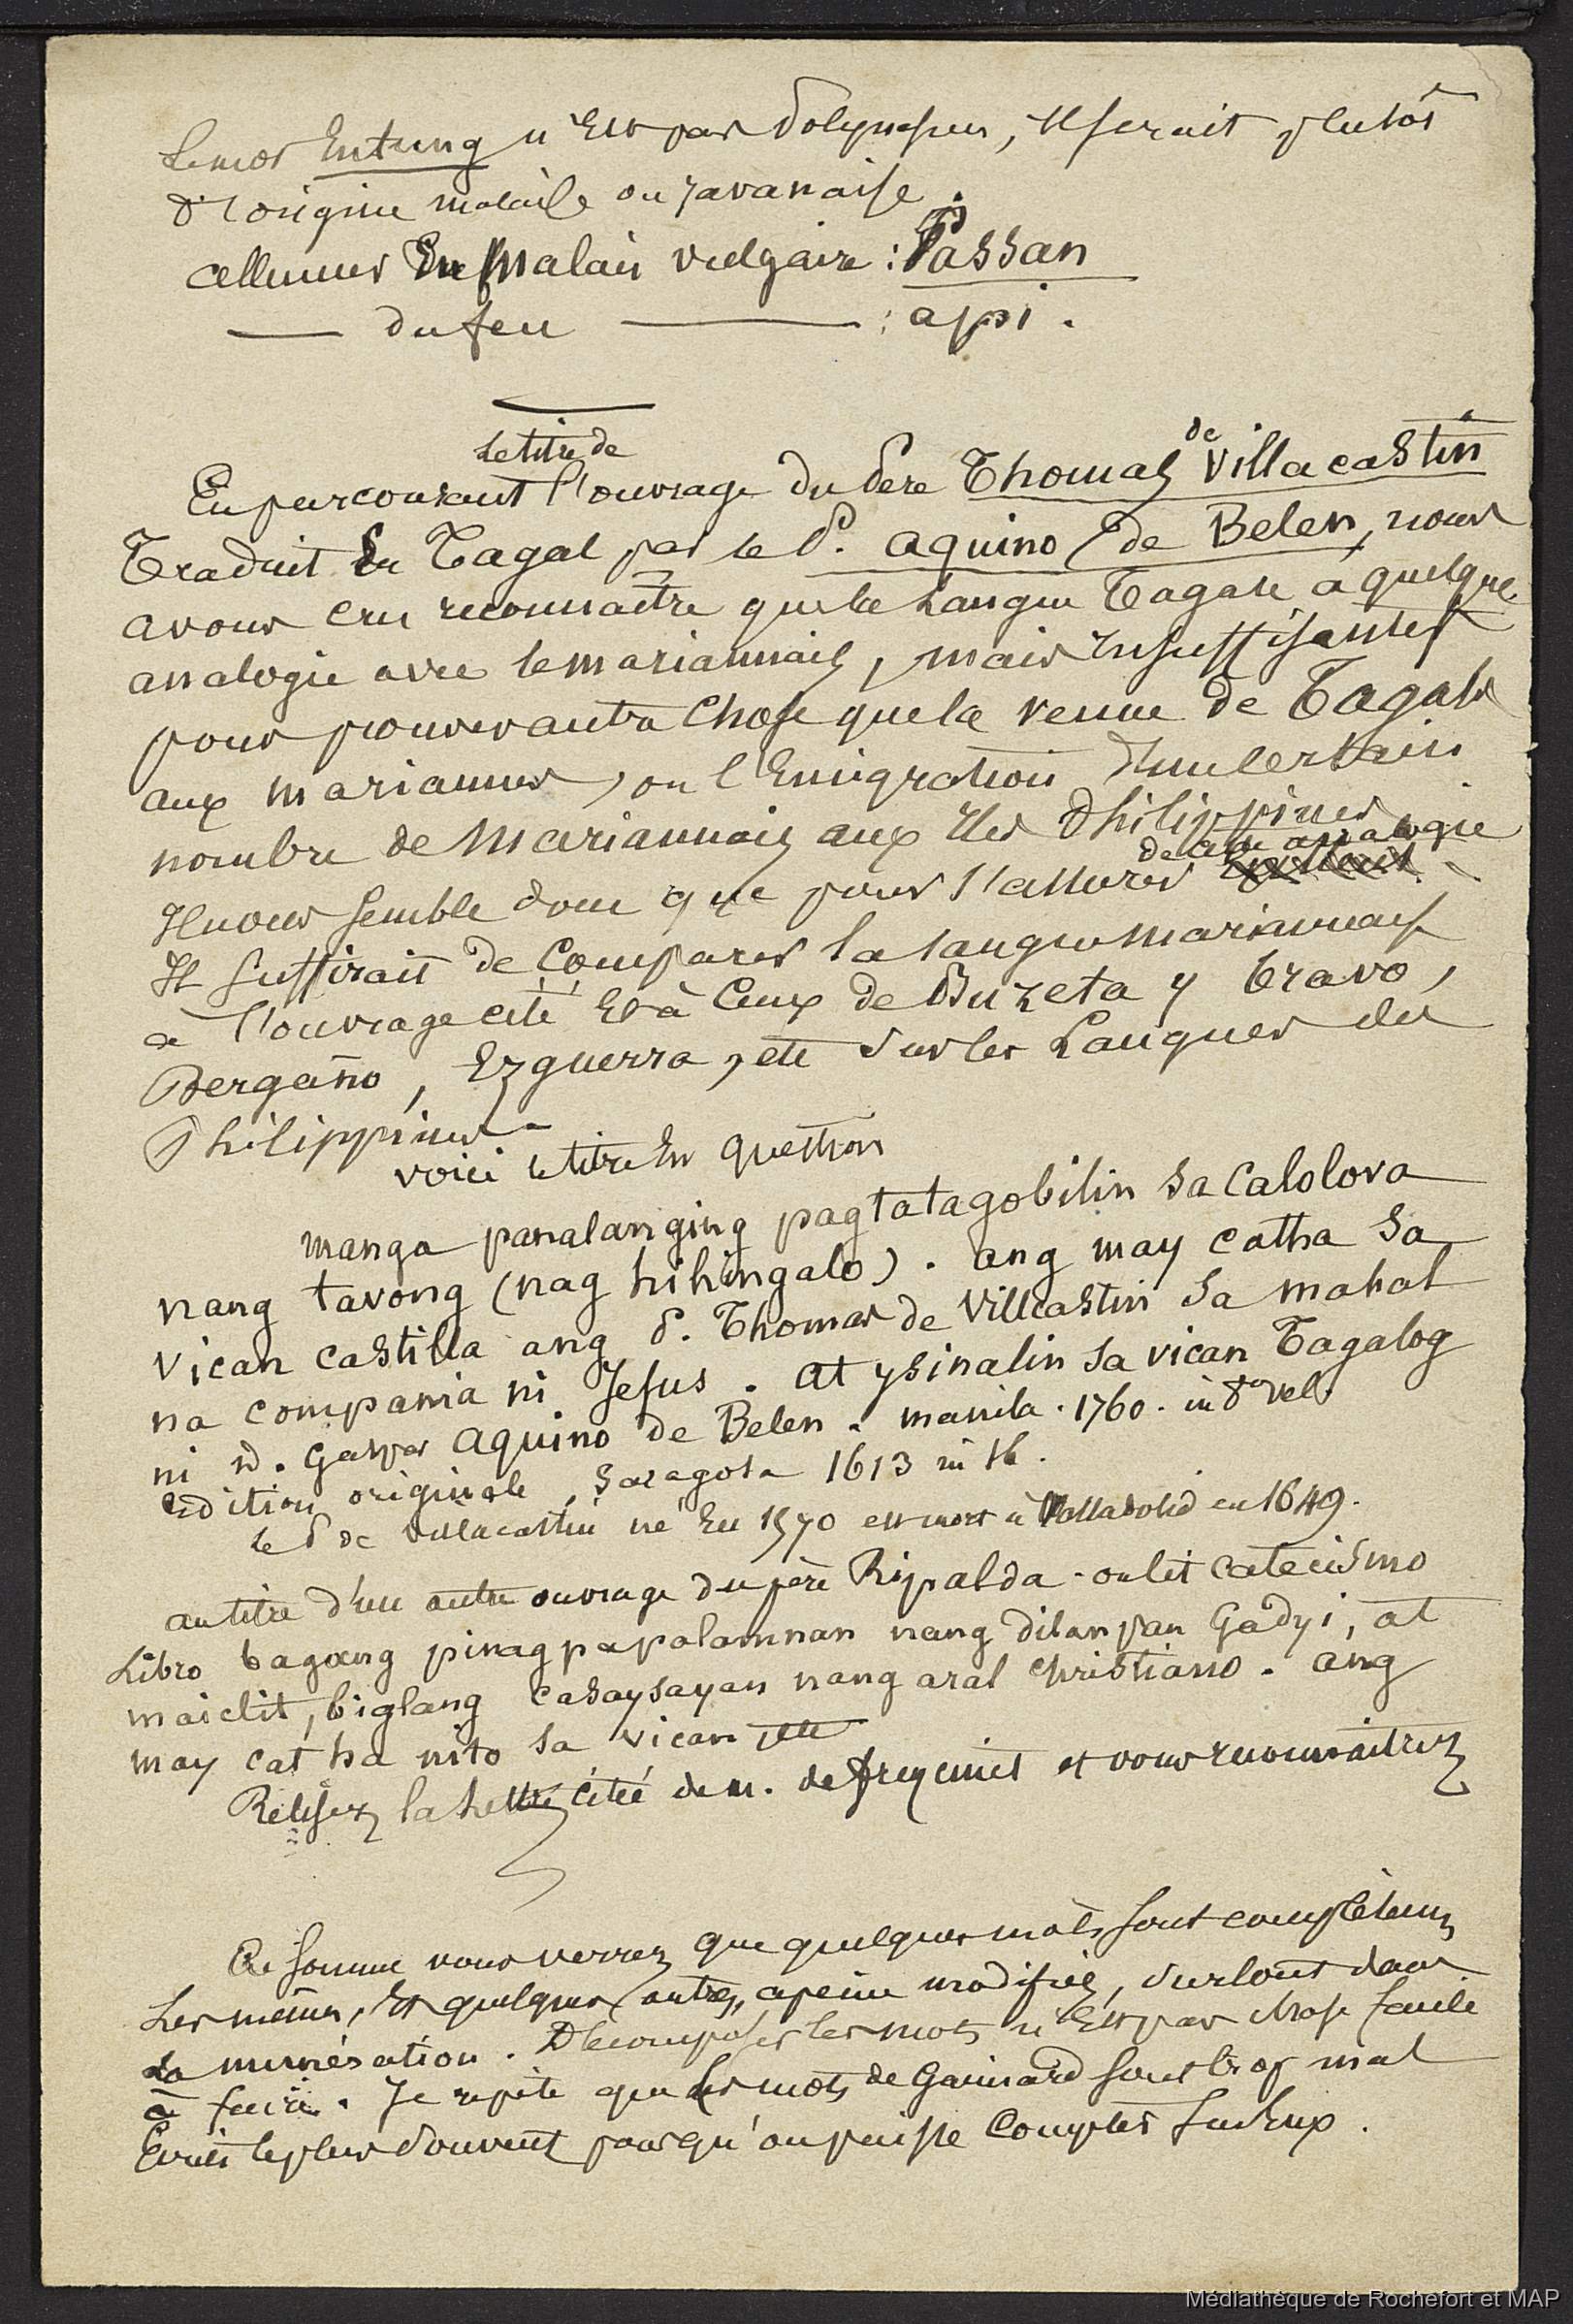 Le mot Entung n'Est pas Polynesien, Il serait plutôt
d'origine malaise ou Javanaise.
allumer En Malais vulgaire : Passan
— du feu — : api.
le titre de
En parcourant l'ouvrage du Père Thomas de Villacastin
Traduit En Tagal par le P. Aquino de Belen, nous
avons cru reconnaitre que la Langue Tagale a quelque
analogie avec le mariannais, mais Insuffisante
pour prouver autre Chose que la venue de Tagals
aux mariannes, ou l'Emigration d'un certain
nombre de Mariannais aux Iles Philippines
de cette analogie
Il nous semble donc que pour s'assurer
Il suffirait de Comparer la langue mariannaise
à l'ouvrage cité Et à Ceux de Buzeta y bravo,
Bergaño, Ezguerra, etc sur les Langues des
Philippines.
voici le titre En question
manga panalanging pagtatagobilin sa calolova
nang tavong (nag hihingalo). ang may catha sa
vican castilla ang P. Thomas de Villcastin sa mahal
na compania ni Jesus. at ysinalin sa vican Tagalog
ni D. Gaspar Aquino de Belen. manila. 1760. in 8° vel.
Edition originale, Saragosa 1613 in 16.
le P de Villacastin né En 1570 est mort à Valladolid en 1649.
au titre d'un autre ouvrage du père Ripalda on lit catecismo
Libro bagong pinagpapalamnan nang dilan pan Gadyi, at
maiclit, biglang casaysayan nang aral christiano. ang
may cat ha nito sa vican etc
Relisez la Lettre citée de M. de freycinet et vous reconnaitrez
En somme vous verrez que quelques mots sont complètemt
Les mêmes, Et quelques autres, a peine modifiés, surtout dans
La numération. Décomposer les mots n'Est pas chose facile
à faire. Je repete que Les mots de Gaimard sont trop mal
Ecrits le plus souvent pour qu'on puisse Compter sur Eux.
Médiathèque de Rochefort et MAP